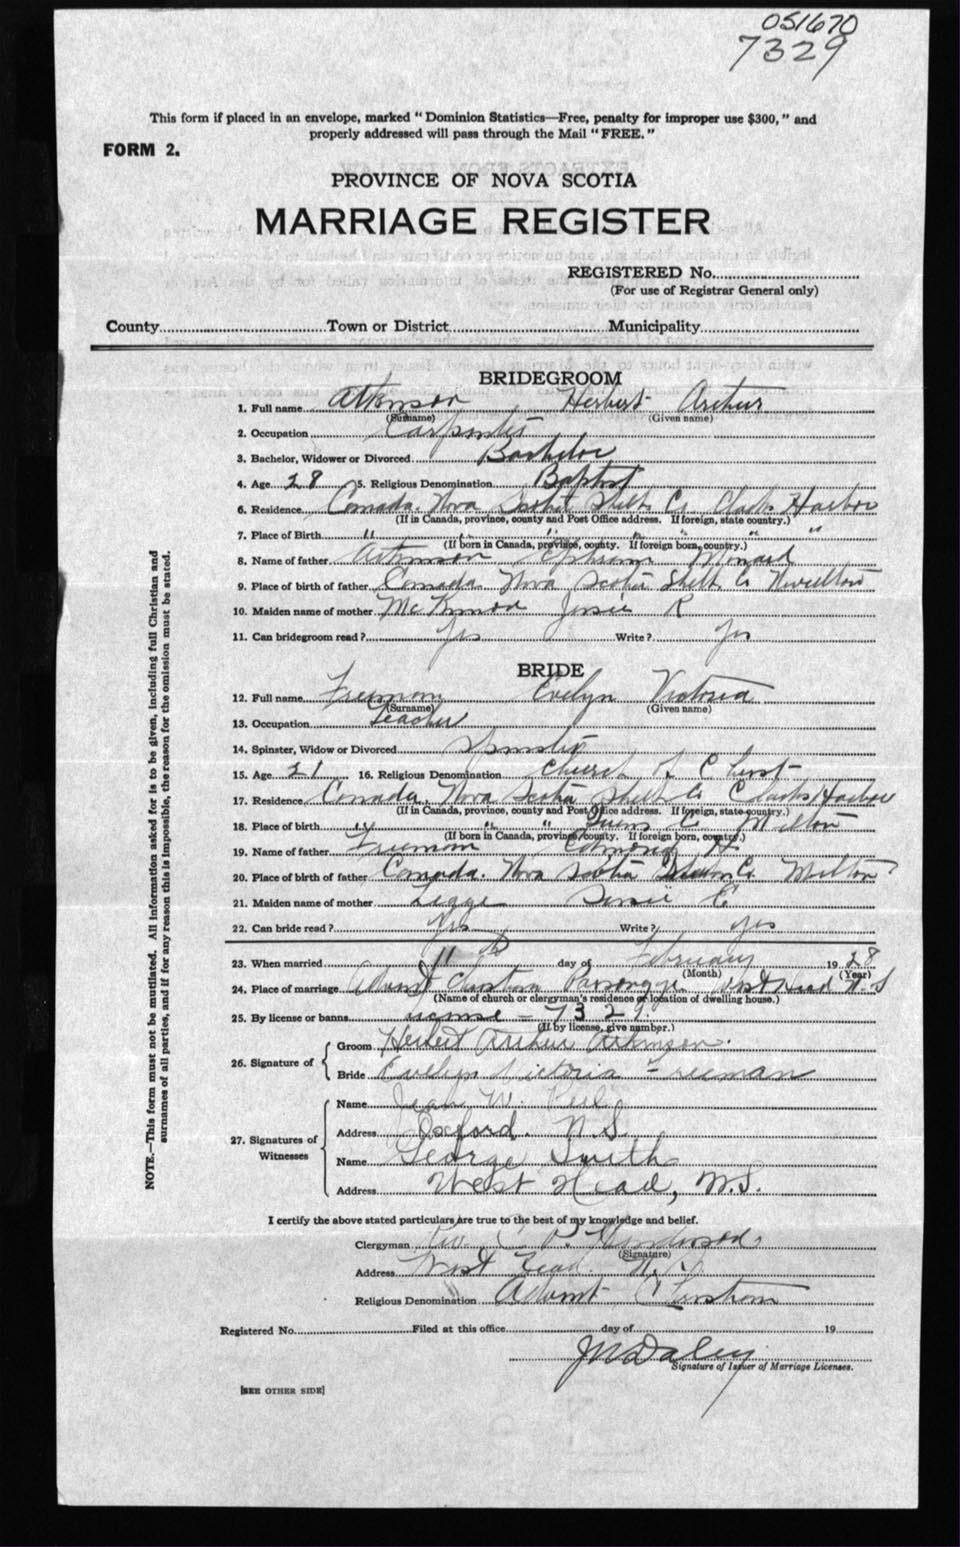 051670
7329
This form if placed in an envelope, marked "Dominion Statistics—Free, penalty for improper use $300," and
properly addressed will pass through the Mail "FREE."
FORM 2.
PROVINCE OF NOVA SCOTIA
MARRIAGE REGISTER
REGISTERED No.
(For use of Registrar General only)
County Town or District Municipality
BRIDEGROOM
1. Full name Atkinson Herbert Arthur
(Surname) (Given name)
2. Occupation Carpenter
3. Bachelor, Widower or Divorced Bachelor
4. Age 28 5. Religious Denomination Baptist
6. Residence Canada. Nova Scotia Shelb. Co. Clarks Harbor
(If in Canada, province, county and Post Office address. If foreign, state country.)
7. Place of Birth " " " " "
(If born in Canada, province, county. If foreign born, country.)
8. Name of father Atkinson
9. Place of birth of father Canada Nova Scotia Shelb Co
10. Maiden name of mother McKinnon Jessie R
11. Can bridegroom read? Yes Write? Yes
BRIDE
12. Full name Freeman Evelyn Victoria
(Surname) (Given name)
13. Occupation Teacher
14. Spinster, Widow or Divorced Spinster
15. Age 21 16. Religious Denomination Church of Christ
17. Residence Canada. Nova Scotia Shelb Co Clarks Harbor
(If in Canada, province, county and Post Office address. If foreign, state country.)
18. Place of birth " " " Queens Co Milton
(If born in Canada, province, county. If foreign born, country.)
19. Name of father Freeman Edmond H
20. Place of birth of father Canada. Nova Scotia Co. Milton
21. Maiden name of mother Legge
22. Can bride read? Yes Write? yes
23. When married 11 day of February 1928
(Month) (Year)
24. Place of marriage Advent Christian Parsonage West Head N.S
(Name of church or clergyman's residence or location of dwelling house.)
25. By license or banns license - 7329.
(If by license, give number.)
26. Signature of
Groom Herbert Arthur Atkinson.
Bride Evelyn Victoria Freeman
27. Signatures of
Witnesses
Name Jean W.
Address Oxford. N.S.
Name George Smith
Address West Head, N.S.
I certify the above stated particulars are true to the best of my knowledge and belief.
Clergyman Rev. C. P. Henderson
(Signature)
Address West Head. N.S.
Religious Denomination Advent Christian
Registered No. Filed at this office day of 19
Signature of Issuer of Marriage Licenses.
[SEE OTHER SIDE]
NOTE.—This form must not be mutilated. All information asked for is to be given, including full Christian and
surnames of all parties, and if for any reason this is impossible, the reason for the omission must be stated.